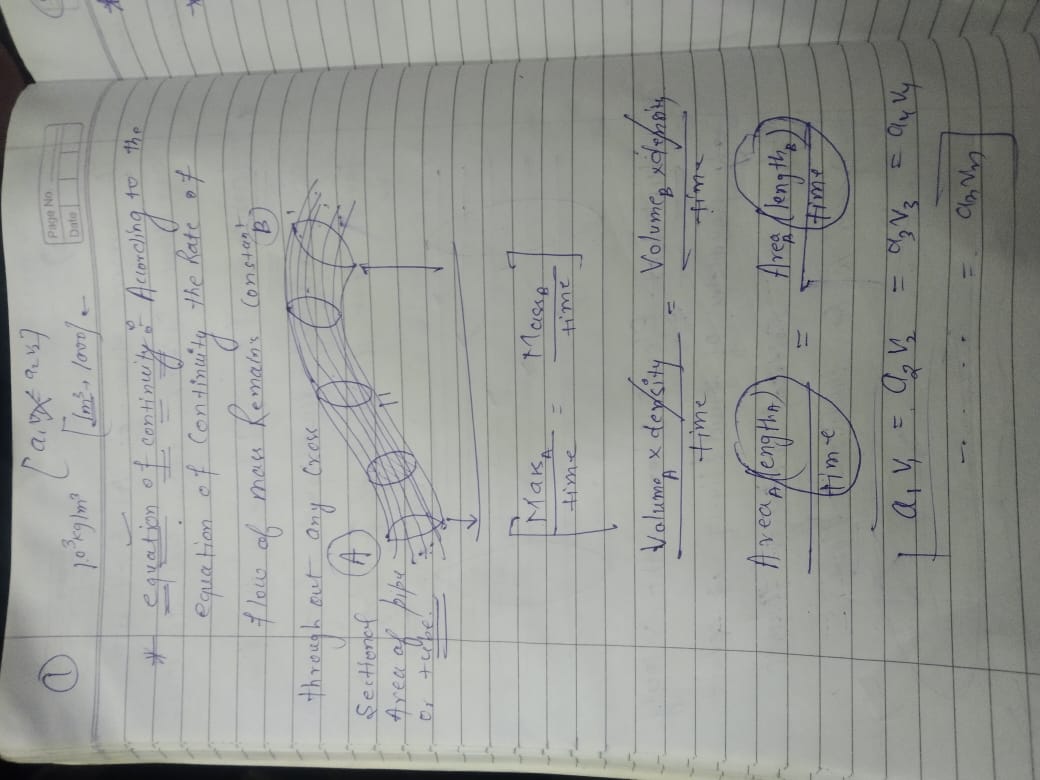 1
[a₁v₁ = a₂v₂]
10³kg/m³ [1m³→1000] ←
Page No.
Date
* equation of continuity : According to the
equation of Continuity the Rate of
flow of mass Remains Constant
B
through out any Cross
Sectional A
Area of pipe
or tube.
[Mass_A / time = Mass_B / time]
Volume_A × density / time = Volume_B × density / time
Area_A (length_A) / time = Area_B (length_B) / time
a₁ v₁ = a₂ v₂ = a₃ v₃ = a₄ v₄
- . . . . . = aₙ vₙ